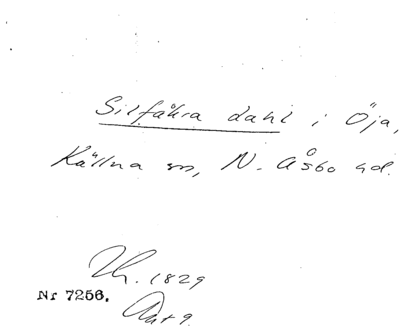 Silfåkra dahl i Öja,
Källna sn, N. Åsbo hd.
1829
Nr 7256.